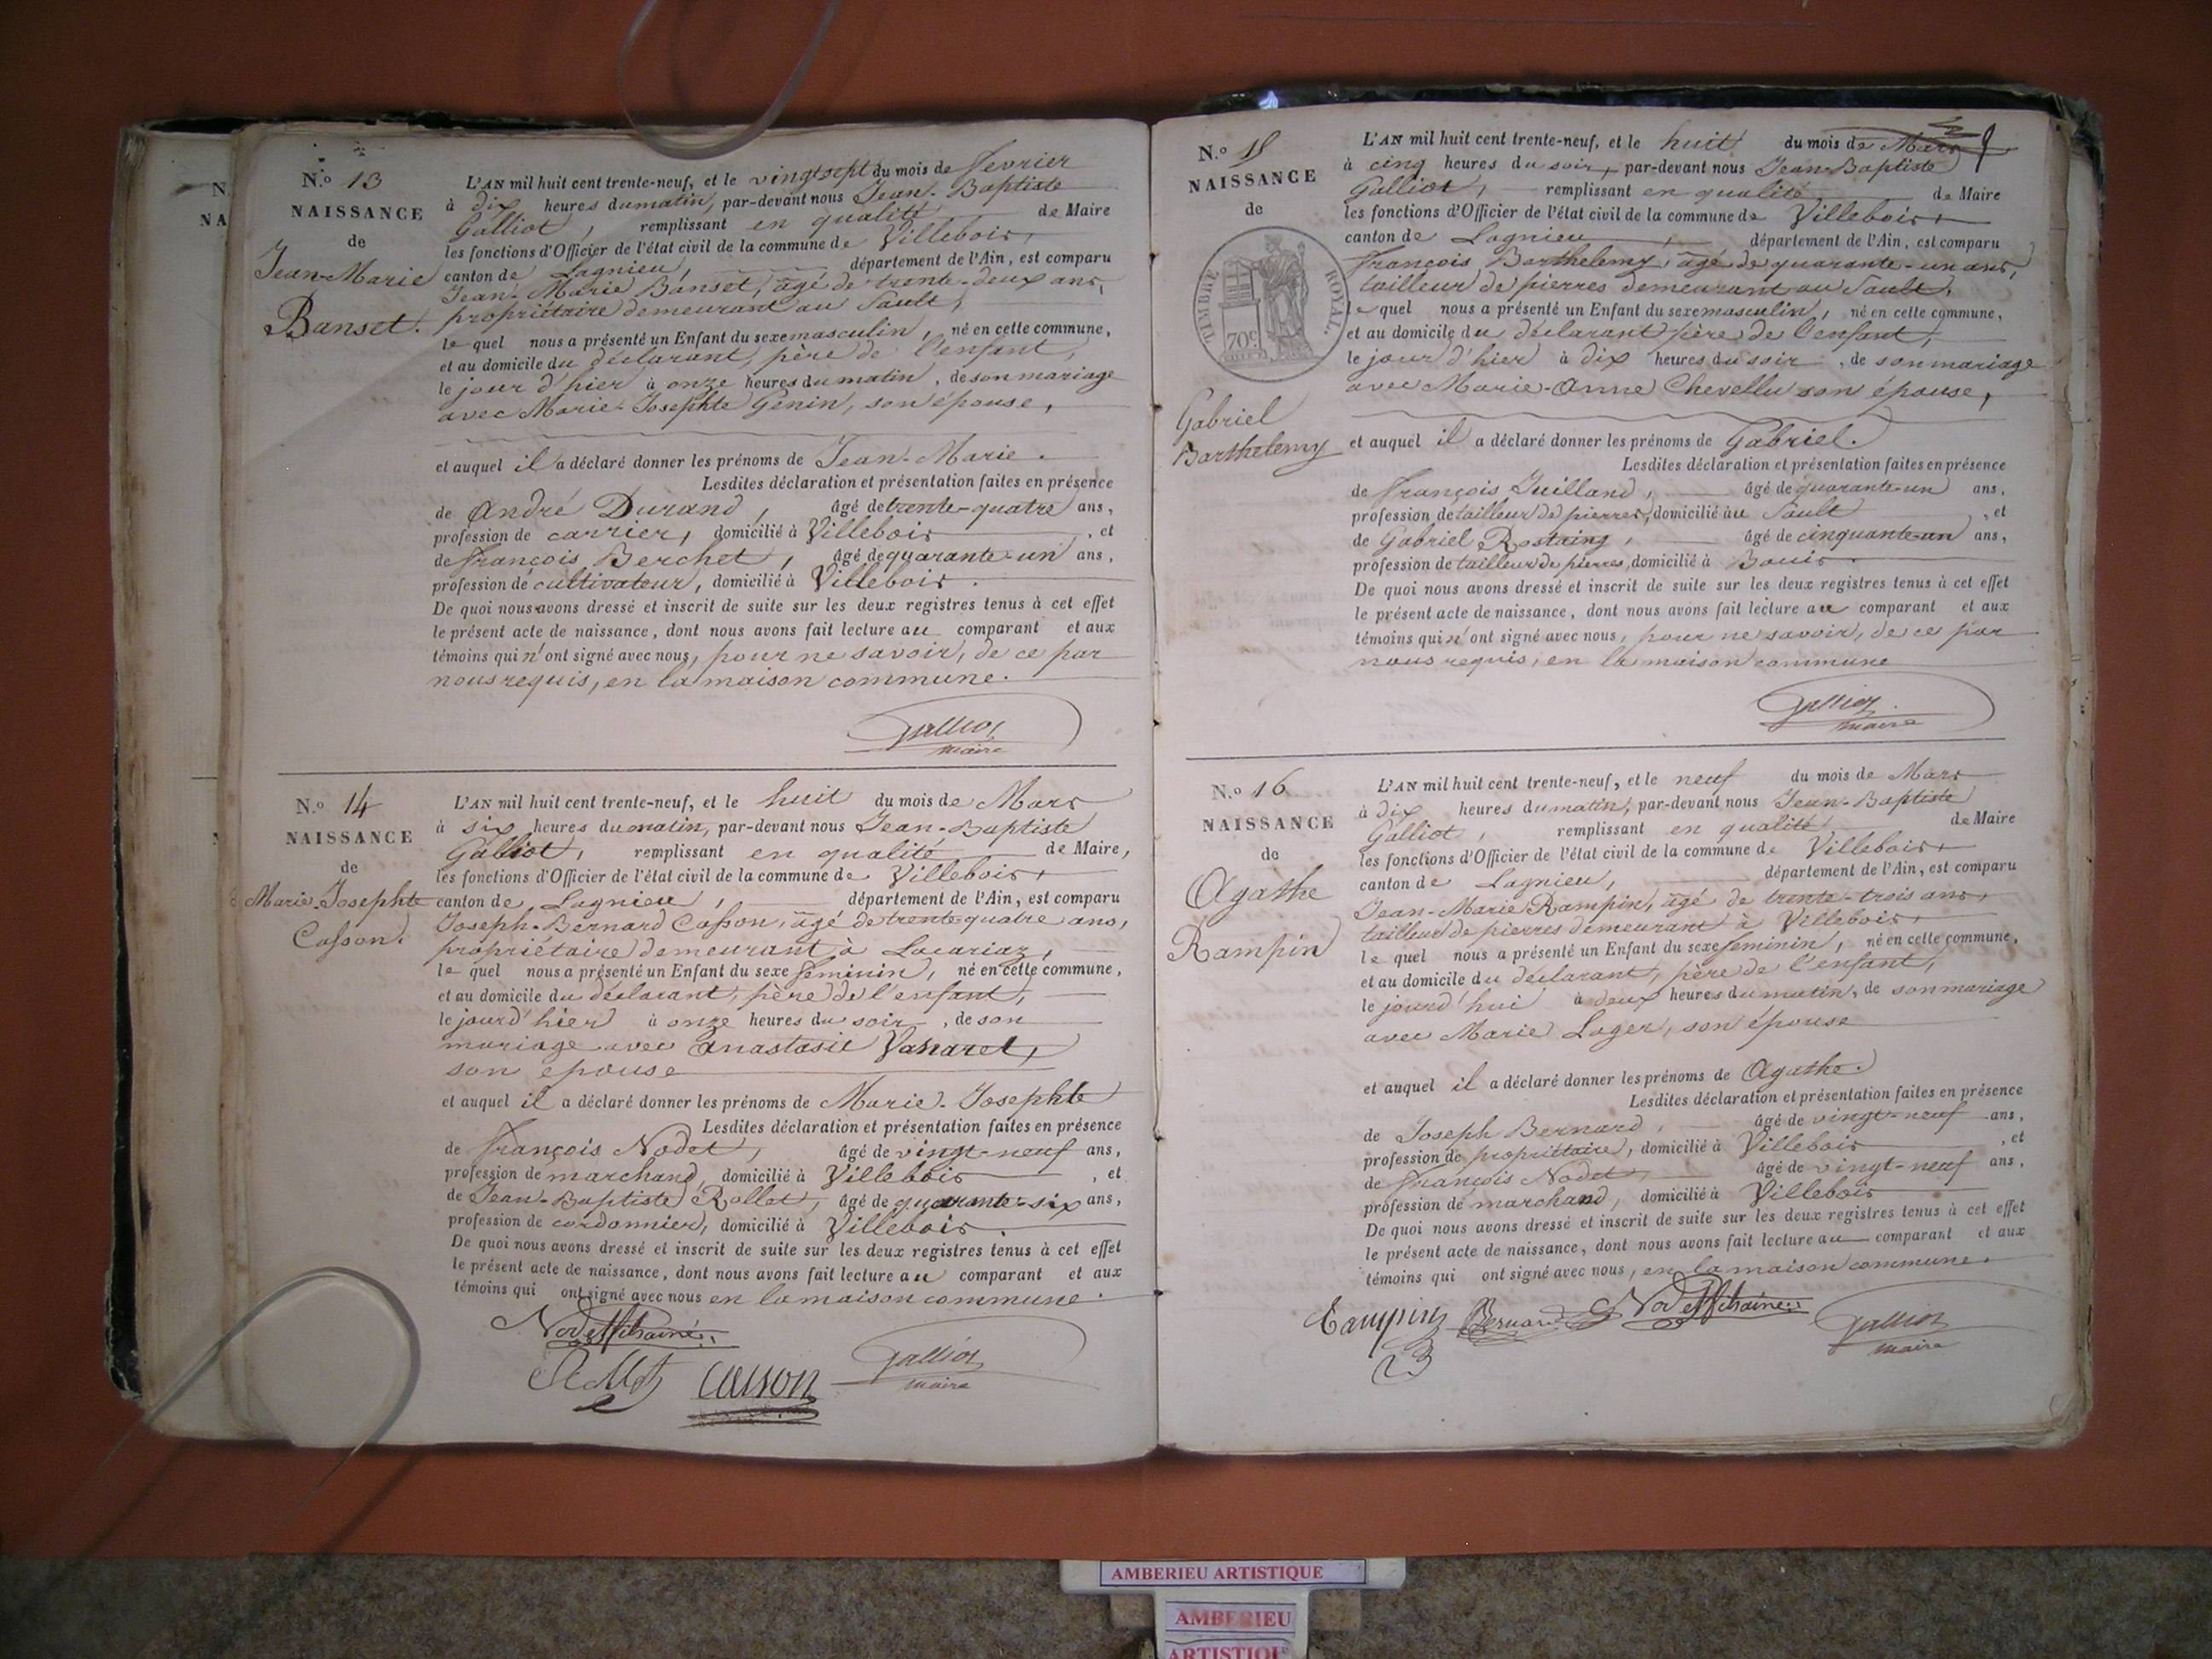 N.° 13
NAISSANCE
de
Jean-Marie
Banset.
L'AN mil huit cent trente-neuf, et le vingtsept du mois de fevrier
à dix heures du matin, par-devant nous Jean-Baptiste
Galliot, remplissant en qualité de Maire
les fonctions d'Officier de l'état civil de la commune de Villebois,
canton de Lagnieu, département de l'Ain, est comparu
Jean-Marie Banset, âgé de trente-deux ans,
propriétaire demeurant au Sault,
le quel nous a présenté un Enfant du sexe masculin, né en cette commune,
et au domicile du déclarant, père de l'enfant,
le jour d'hier à onze heures du matin, de son mariage
avec Marie-Josephte Genin, son épouse,
et auquel il a déclaré donner les prénoms de Jean-Marie.
Lesdites déclaration et présentation faites en présence
de André Durand, âgé de trente-quatre ans,
profession de carrier, domicilié à Villebois, et
de François Berchet, âgé de quarante-un ans,
profession de cultivateur, domicilié à Villebois.
De quoi nous avons dressé et inscrit de suite sur les deux registres tenus à cet effet
le présent acte de naissance, dont nous avons fait lecture au comparant et aux
témoins qui n'ont signé avec nous, pour ne savoir, de ce par
nous requis, en la maison commune.
Galliot
maire
N.° 14
NAISSANCE
de
Marie-Josephte
Casson.
L'AN mil huit cent trente-neuf, et le huit du mois de Mars
à six heures du matin, par-devant nous Jean-Baptiste
Galliot, remplissant en qualité de Maire,
les fonctions d'Officier de l'état civil de la commune de Villebois,
canton de Lagnieu, département de l'Ain, est comparu
Joseph-Bernard Casson, âgé de trente-quatre ans,
propriétaire demeurant à Lacariaz,
le quel nous a présenté un Enfant du sexe féminin, né en cette commune,
et au domicile du déclarant, père de l'enfant,
le jour d'hier à onze heures du soir, de son
mariage avec Anastasie Vanaret,
son épouse
et auquel il a déclaré donner les prénoms de Marie-Josephte
Lesdites déclaration et présentation faites en présence
de François Nodet, âgé de vingt-neuf ans,
profession de marchand, domicilié à Villebois, et
de Jean-Baptiste Rollet, âgé de quarante-six ans,
profession de cordonnier, domicilié à Villebois.
De quoi nous avons dressé et inscrit de suite sur les deux registres tenus à cet effet
le présent acte de naissance, dont nous avons fait lecture au comparant et aux
témoins qui ont signé avec nous en la maison commune.
Nodet fils ainé
Rollet casson
Galliot
maire
N.° 15
NAISSANCE
de
TIMBRE ROYAL
70c
Gabriel
Barthelemy
L'AN mil huit cent trente-neuf, et le huit du mois de Mars
à cinq heures du soir, par-devant nous Jean-Baptiste
Galliot, remplissant en qualité de Maire
les fonctions d'Officier de l'état civil de la commune de Villebois,
canton de Lagnieu, département de l'Ain, est comparu
François Barthelemy, âgé de quarante-un ans,
tailleur de pierres demeurant au Sault,
le quel nous a présenté un Enfant du sexe masculin, né en cette commune,
et au domicile du déclarant père de l'enfant,
le jour d'hier à dix heures du soir, de son mariage
avec Marie-Anne Chevellu son épouse,
et auquel il a déclaré donner les prénoms de Gabriel.
Lesdites déclaration et présentation faites en présence
de François Juilland, âgé de quarante-un ans,
profession de tailleur de pierres, domicilié au Sault, et
de Gabriel Rostaing, âgé de cinquante-un ans,
profession de tailleur de pierres, domicilié à Bouis.
De quoi nous avons dressé et inscrit de suite sur les deux registres tenus à cet effet
le présent acte de naissance, dont nous avons fait lecture au comparant et aux
témoins qui n'ont signé avec nous, pour ne savoir, de ce par
nous requis, en la maison commune
Galliot
maire
N.° 16
NAISSANCE
de
Agathe
Rampin
L'AN mil huit cent trente-neuf, et le neuf du mois de Mars
à dix heures du matin, par-devant nous Jean-Baptiste
Galliot, remplissant en qualité de Maire
les fonctions d'Officier de l'état civil de la commune de Villebois,
canton de Lagnieu, département de l'Ain, est comparu
Jean-Marie Rampin, âgé de trente-trois ans,
tailleur de pierres demeurant à Villebois,
le quel nous a présenté un Enfant du sexe feminin, né en cette commune,
et au domicile du déclarant, père de l'enfant,
le jourd'hui à deux heures du matin, de son mariage
avec Marie Lager, son épouse
et auquel il a déclaré donner les prénoms de Agathe.
Lesdites déclaration et présentation faites en présence
de Joseph Bernard, âgé de vingt-neuf ans,
profession de propriétaire, domicilié à Villebois, et
de François Nodet, âgé de vingt-neuf ans,
profession de marchand, domicilié à Villebois
De quoi nous avons dressé et inscrit de suite sur les deux registres tenus à cet effet
le présent acte de naissance, dont nous avons fait lecture au comparant et aux
témoins qui ont signé avec nous, en la maison commune.
Rampin Bernard Nodet fils ainé
Galliot
maire
AMBERIEU ARTISTIQUE
AMBERIEU
ARTISTIQUE